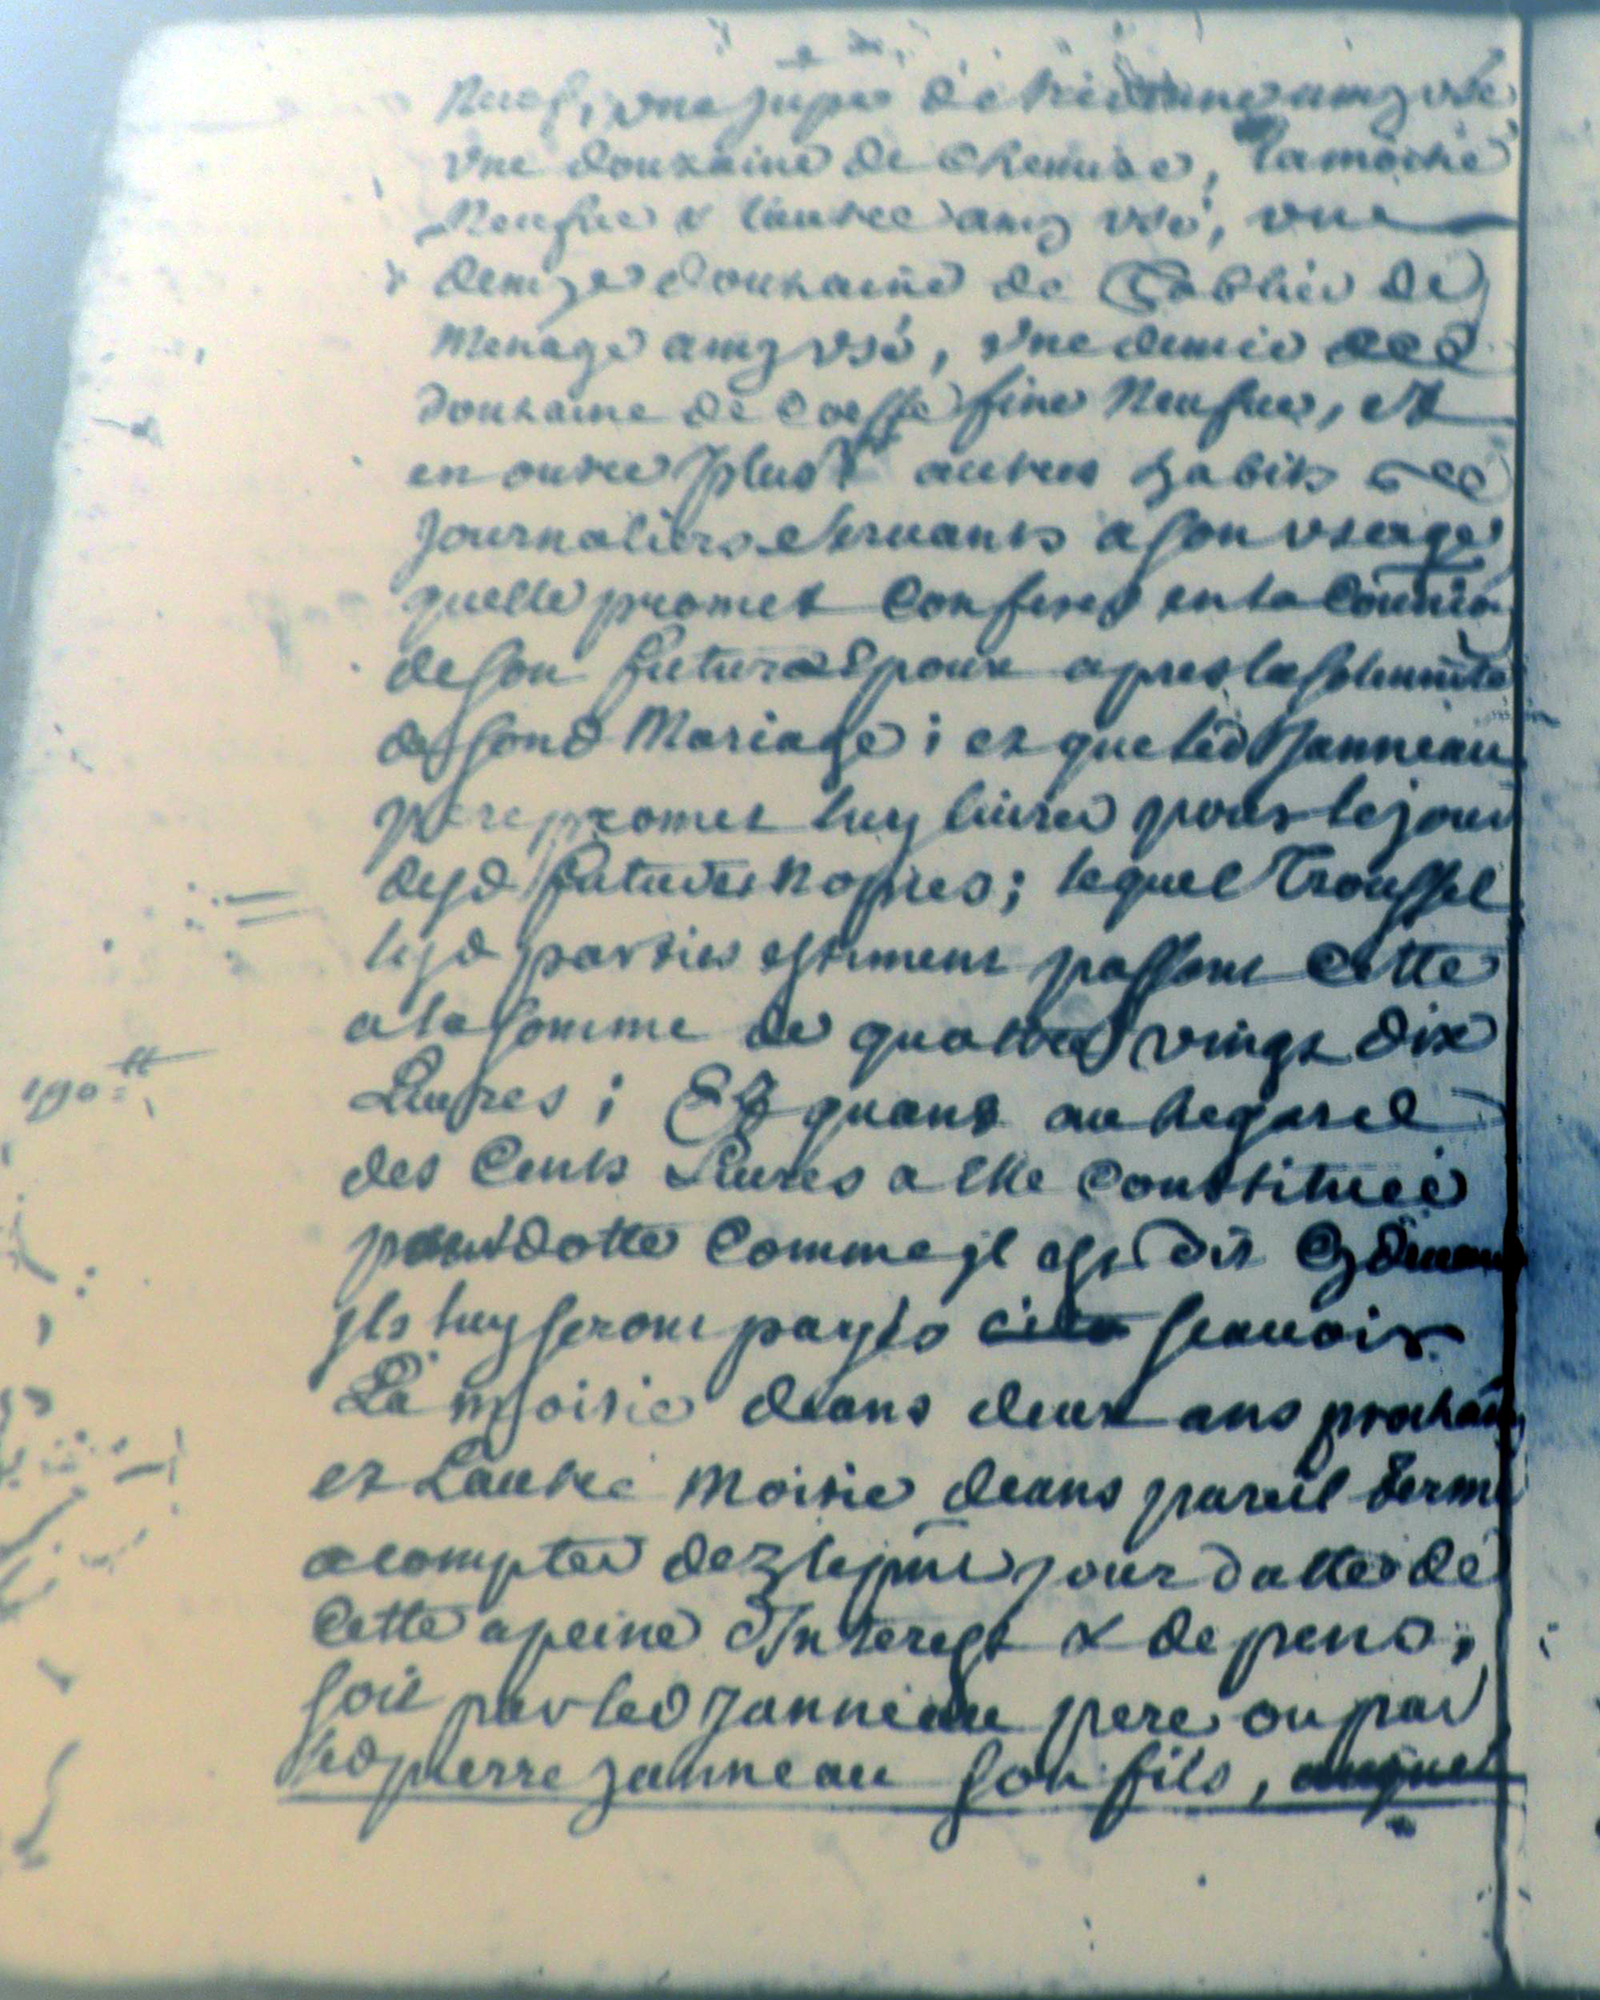 Neuf, une jupe de tiretaine amy usé
Une douzaine de Chemise, la moitié
Neufue & lautre amy usé, une
demye douzaine de Tablier de
Menage amy usé, une demie
douzaine de Coeffe fine Neufue, et
en outre plusrs autres habits
Journaliers servants a son usage
quelle promet Confere en la Comūn
de son futur Espoux apres la solemnité
de sond Mariage; et que led Janneau
pere promet luy livrer pour le jour
desd futures Nopces; lequel Troussel
lesd parties estiment passant Cette
a la somme de quatre vingt dix
190 = ₶
Liures; Et quant au Regard
des Cents Liures a elle Constituée
pour dotte Comme jl est dit Cy devant
jls luy seront payés scauoir
La moitie dans deux ans prochain
et Lautre Moitie dans pareil term
a Compter dez le pnt jour datte de
Cette a peine d'Interest & depens,
soit par led Janneau pere ou par
led pierre Janneau son fils, auquel